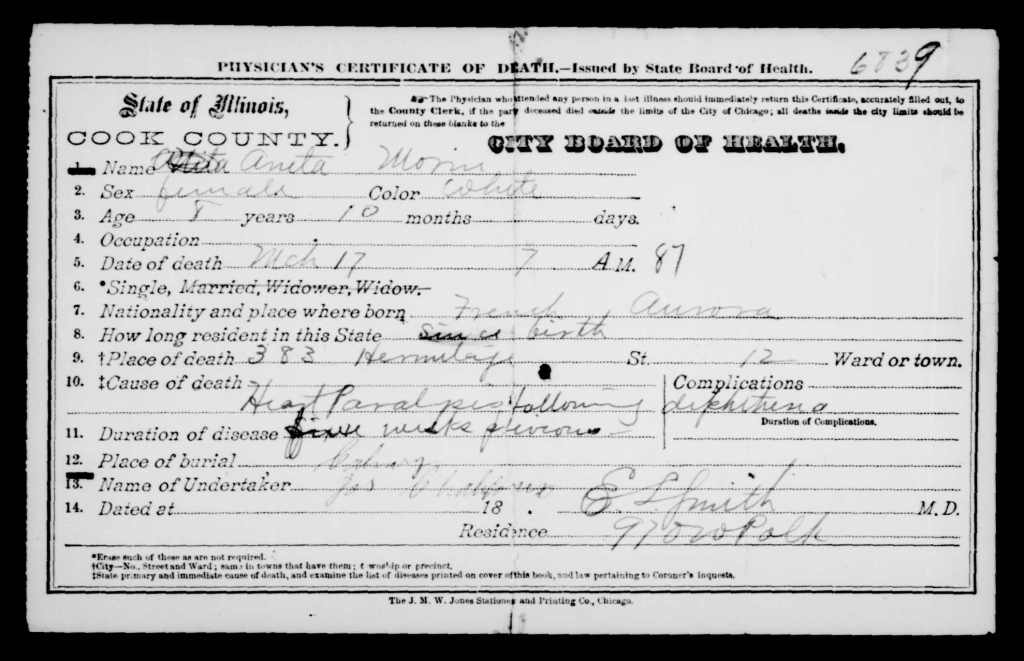 PHYSICIAN'S CERTIFICATE OF DEATH.—Issued by State Board of Health. 6839
State of Illinois,
COOK COUNTY.
☞ The Physician who attended any person in a last illness should immediately return this Certificate, accurately filled out, to
the County Clerk, if the party deceased died outside the limits of the City of Chicago; all deaths inside the city limits should be
returned on these blanks to the
CITY BOARD OF HEALTH.
1. Name Aneta Morin
2. Sex female Color White
3. Age 8 years 10 months days.
4. Occupation
5. Date of death Mch 17 7 A M. 87
6. *Single, Married, Widower, Widow.
7. Nationality and place where born French Aurora
8. How long resident in this State Since birth
9. †Place of death 383 Hermitage St. 12 Ward or town.
10. ‡Cause of death Complications
Heart Paralysis following diphtheria
Duration of Complications.
11. Duration of disease five weeks previous
12. Place of burial
13. Name of Undertaker Jas
14. Dated at 18 . E. L. Smith M. D.
Residence 970 W Polk
*Erase such of these as are not required.
†City—No., Street and Ward; same in towns that have them; township or precinct.
‡State primary and immediate cause of death, and examine the list of diseases printed on cover of this book, and law pertaining to Coroner's inquests.
The J. M. W. Jones Stationery and Printing Co., Chicago.